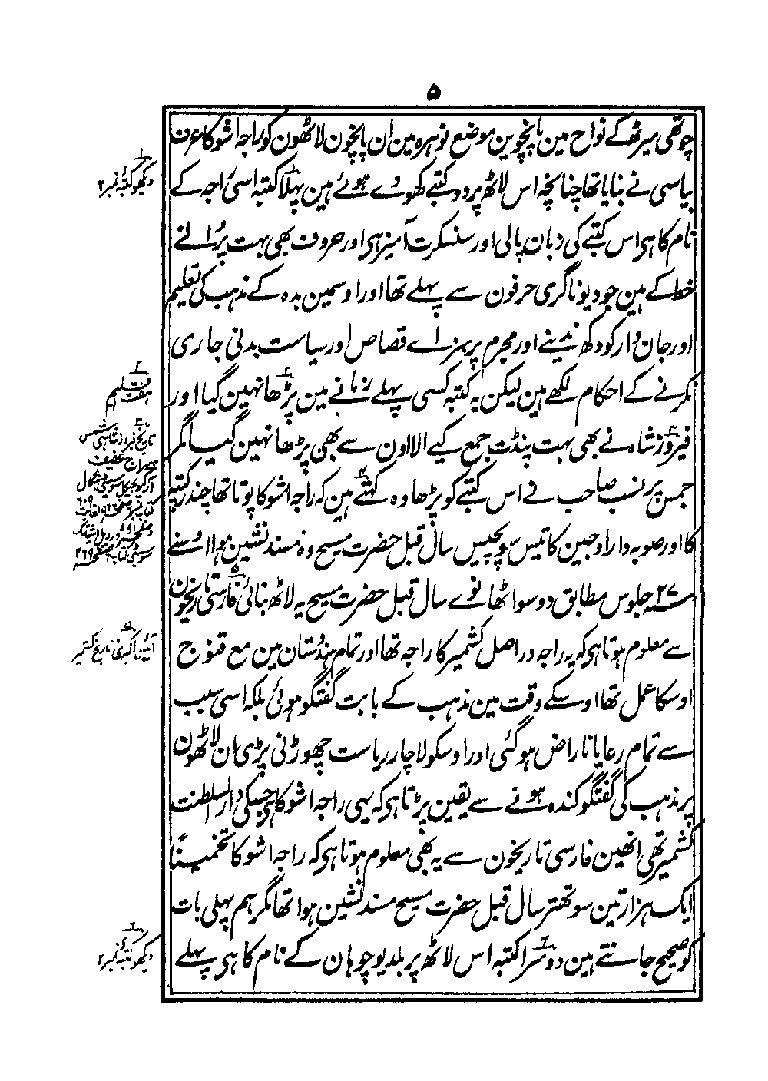 ۵
چوتھی میرٹھ کے نواح مین پانچوین موضع نوہرہ مین ان پانچون لاٹھون کو راجہ اشوکا عرف
بیاسی نے بنایا تھا چنانچہ اس لاٹھ پر دو کتبے کھودے ہوئے ہین پہلا کتبہ اسی راجہ کے
نام کا ہی اس کتبے کی زبان پالی اور سنسکرت آمیز ہی اور حروف بھی بہت پرانے
خط کے ہین جو دیوناگری حرفون سے پہلے تھا اور اوسمین بدہ کے مذہب کی تعلیم
اور جان دار کو دکھ ندینے اور مجرم پر سزاے قصاص اور سیاست بدنی جاری
نکرنے کے احکام لکھے ہین لیکن یہ کتبہ کسی پہلے زمانے مین پڑھا نہین گیا اور
فیروز شاہ نے بھی بہت پنڈت جمع کیے الا اون سے بھی پڑھا نہین گیا مگر
جمس پرنسب صاحب نے اس کتبے کو پڑھا وہ کہتے ہین کہ راجہ اشوکا پوتا تھا چندر گپتہ
کا اور صوبہ دار اوجین کا تین سو پچیس سال قبل حضرت مسیح وہ مسند نشین ہوا اسنے
سنہ ۲۷ جلوس مطابق دو سو اٹھانوے سال قبل حضرت مسیح یہ لاٹھ بنائی فارسی تاریخون
سے معلوم ہوتا ہی کہ یہ راجہ دراصل کشمیر کا راجہ تھا اور تمام ہندستان مین مع قنوج
اوسکا عمل تھا اوسکے وقت مین مذہب کے بابت گفتگو ہوئی بلکہ اسی سبب
سے تمام رعایا ناراض ہو گئی اور اوسکو لاچار ریاست چھوڑنی پڑی ان لاٹھون
پر مذہب کی گفتگو کندہ ہونے سے یقین پڑتا ہی کہ یہی راجہ اشوکا ہی جسکی دار السلطنت
کشمیر تھی انھین فارسی تاریخون سے یہ بھی معلوم ہوتا ہی کہ راجہ اشوکا تخمیناً
ایک ہزار تین سو تہتر سال قبل حضرت مسیح مسند نشین ہوا تھا مگر ہم پہلی بات
کو صحیح جانتے ہین دوسرا کتبہ اس لاٹھ پر بلدیو چوہان کے نام کا ہی پہلے
دیکھو کتبہ نمبر ۲
ہفت اقلیم
تاریخ فیروز شاہی شمس
سراج عفیف
آئین اکبری تاریخ کشمیر
دیکھو کتبہ نمبر